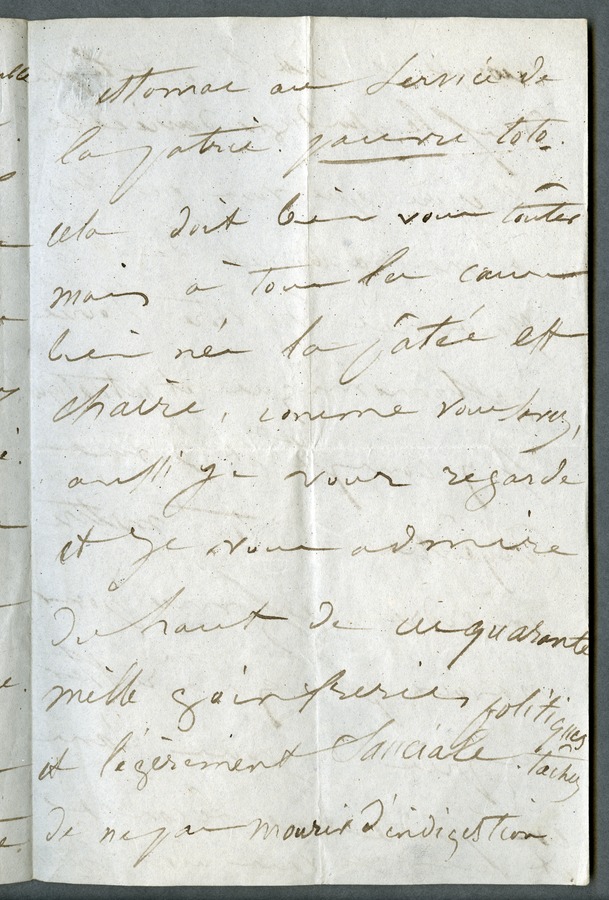 estomac au service de
la patrie. pauvre toto.
cela doit bien vous
mais à tous les cœurs
bien née la pâtée est
chaire, comme vous
aussi je vous regarde
et je vous admire
du haut de cinquante
mille goinfreries politiques
et légèrement sauciale. tâchez
de ne pas mourir d'indigestion